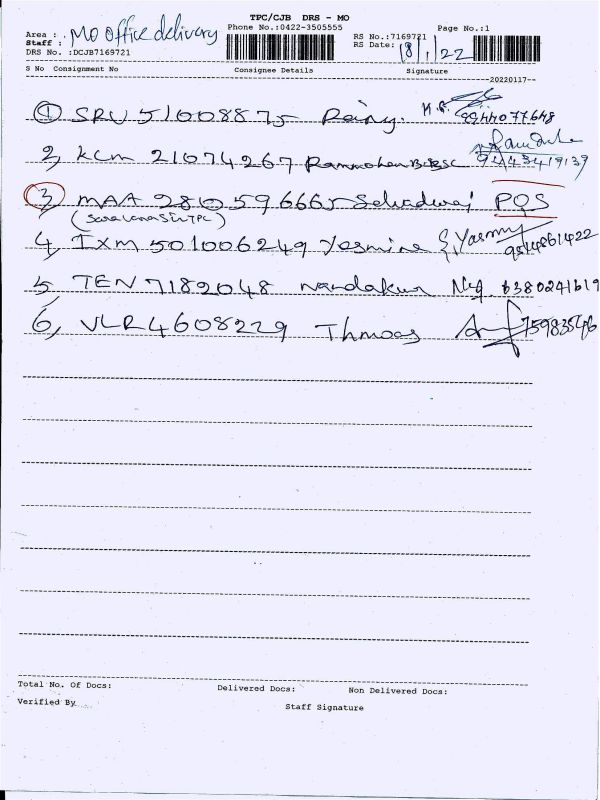 TPC/CJB DRS - MO
Phone No.:0422-3505555
Page No.:1
Area : MO office delivery
Staff :
DRS No. :DCJB7169721
RS No.:7169721
RS Date: 18/1/22
S No Consignment No Consignee Details Signature
--20220117--
1 SRU 51008875 9944077648
2, KCM 21074267 9443419139
3, MAA 280596665 PQS
4, IXM 501006249 Yasmine S. Yasmy 9514861422
5, TEN 7182048 Nandakum
6, VLR 4608229 Thmoas
Total No. Of Docs: Delivered Docs: Non Delivered Docs:
Verified By Staff Signature